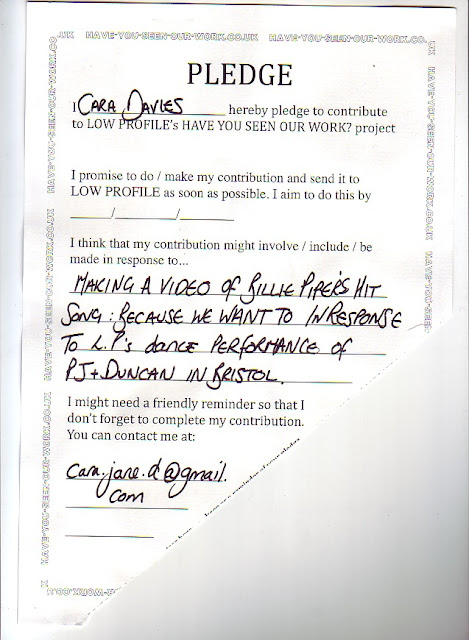 .UK HAVE-YOU-SEEN-OUR-WORK.CO.UK HAVE-YOU-SEEN-OUR-WORK.CO.
PLEDGE
I CARA DAVIES hereby pledge to contribute
to LOW PROFILE's HAVE YOU SEEN OUR WORK? project
I promise to do / make my contribution and send it to
LOW PROFILE as soon as possible. I aim to do this by
______/________/_______
I think that my contribution might involve / include / be
made in response to...
MAKING A VIDEO OF BILLIE PIPER'S HIT
SONG : BECAUSE WE WANT TO IN RESPONSE
TO L.P's dance PERFORMANCE OF
PJ + DUNCAN IN BRISTOL.
I might need a friendly reminder so that I
don't forget to complete my contribution.
You can contact me at:
cara.jane.d@gmail.
com
HAVE-YOU-SEEN-OUR-WORK.CO.UK
HAVE-YOU-SEEN-OUR-WORK.CO.UK